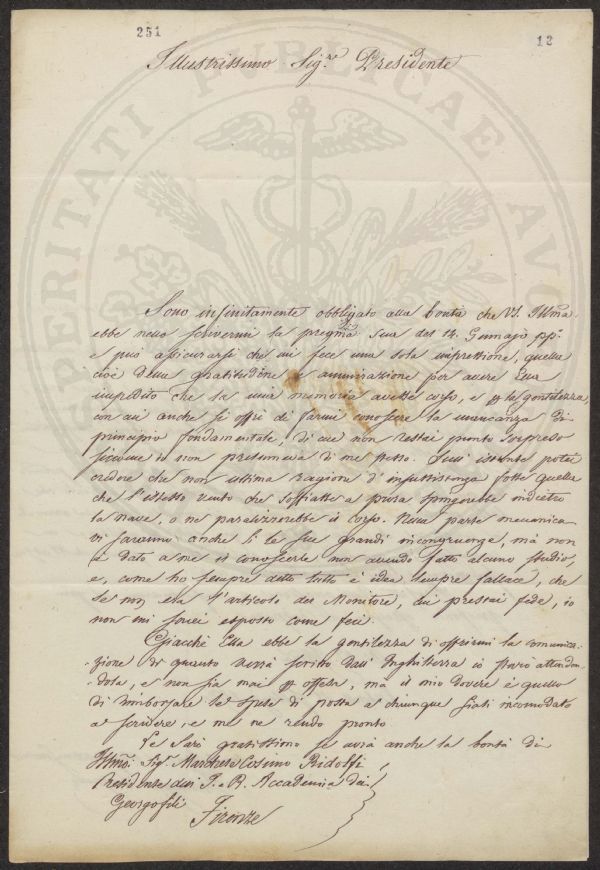 251
12
Illustrissimo Sig.re Presidente
Sono infinitamente obbligato alla bontà che V.S. Illma
ebbe nello scrivermi la pregma Sua del 14. Gennajo pp.o
e può assicurarsi che mi fece una sola impressione, quella
cioè della gratitudine e ammirazione per avere Ella
impedito che la mia memoria avesse corso, e la gentilezza,
con cui anche si offrì di farmi conoscere la mancanza di
principio fondamentale, di cui non restai punto sorpreso
siccome io non presumeva di me stesso. Sull'istante potei
credere che non ultima ragione d'insussistenza fosse quella
che l'istesso vento che soffiasse a prua spingerebbe indietro
la nave, o ne paralizzerebbe il corso. Nella parte meccanica
vi saranno anche le sue grandi incongruenze, ma non
è dato a me il conoscerle non avendo fatto alcuno studio,
e, come ho sempre detto tutto è idea sempre fallace, che
se non era l'articolo del Monitore, cui prestai fede, io
non mi sarei esposto come feci.
Giacchè Ella ebbe la gentilezza di offrirmi la comunica-
-zione di quanto verrà scritto dall'Inghilterra io starò attenden-
-dola, e non sia mai offesa, ma il mio dovere è quello
di rimborsare le spese di posta a chiunque siasi incomodato
a scrivere, e me ne rendo pronto
Le sarò gratissimo se avrà anche la bontà di
Illmo. Sig.r Marchese Cosimo Ridolfi
Presidente dell'I. e R. Accademia dei
Georgofili
Firenze
PROSPERITATI PUBLICAE AU